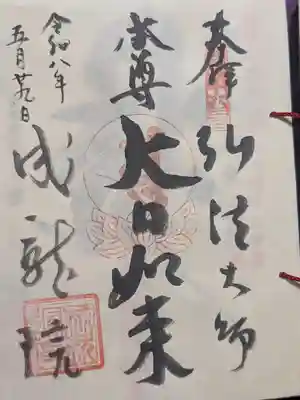 奉拝
弘法大師
本尊
大日如来
令和八年
五月廿九日
成龍院